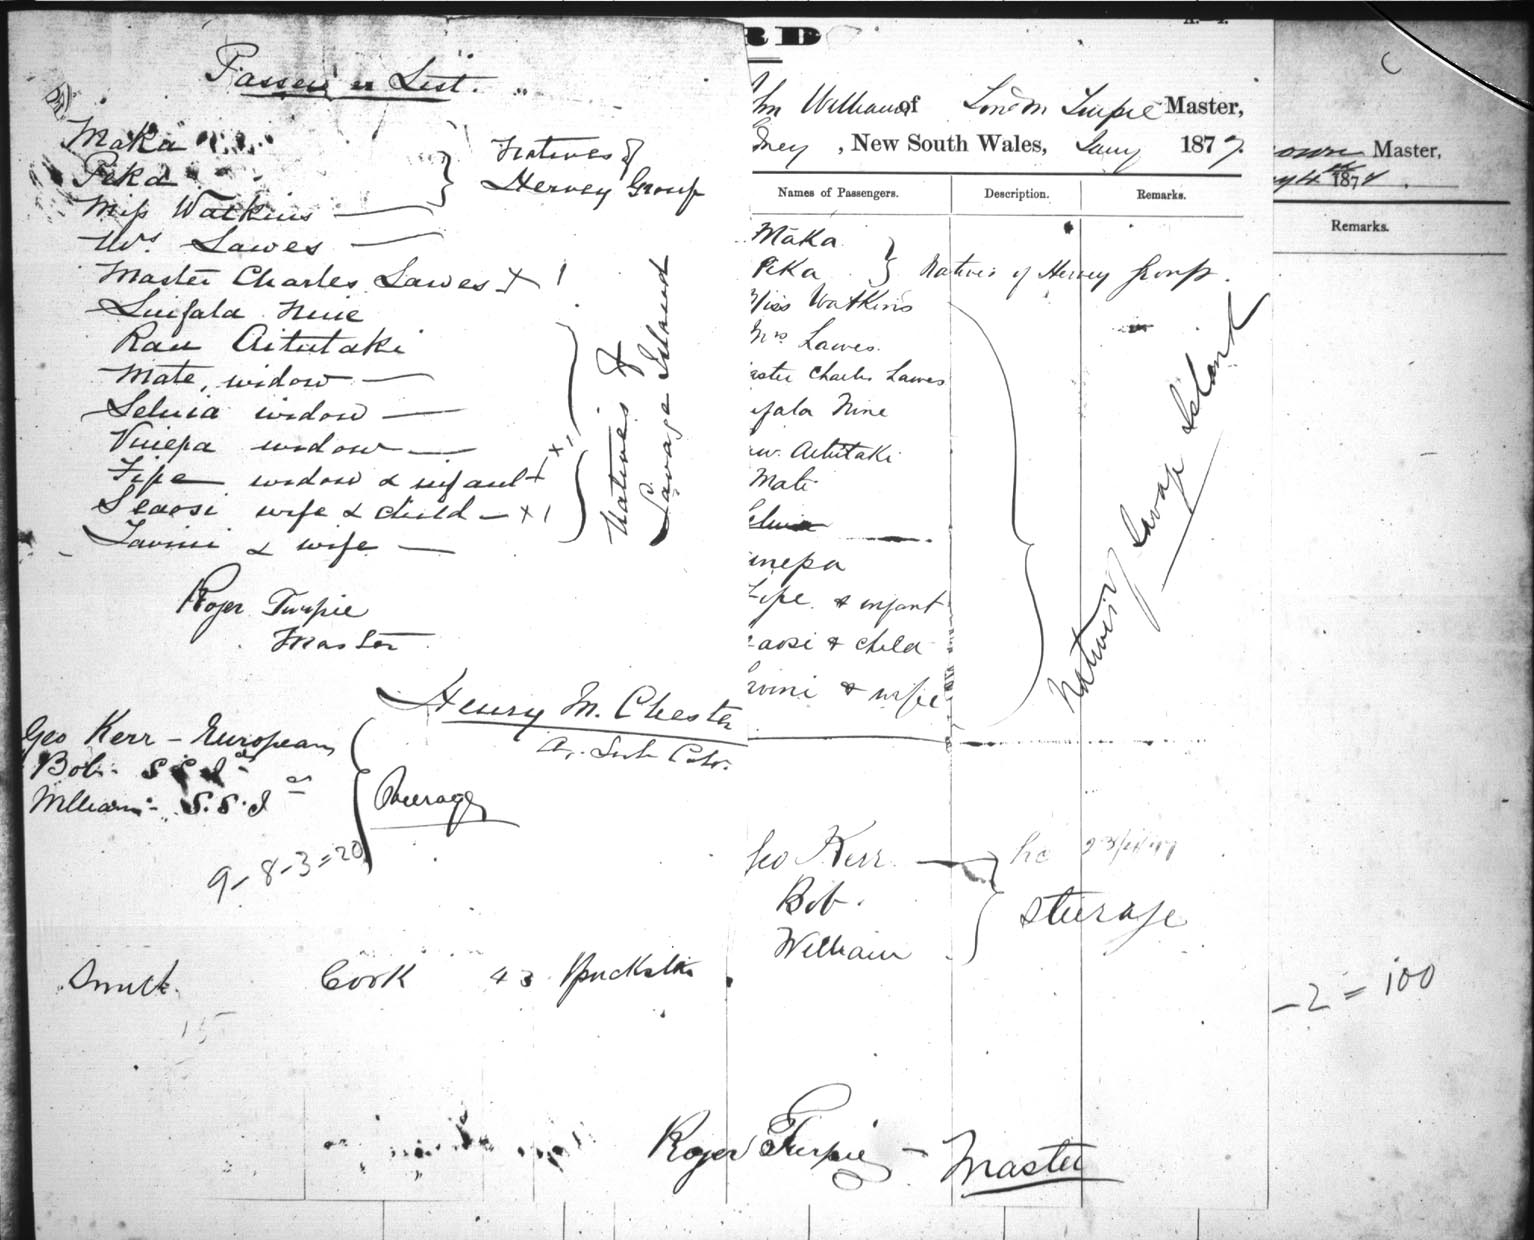 Passenger List.
Maka
Peka
Natives of
Hervey Group
Miss Watkins
Mrs Lawes
Master Charles Lawes × 1
Luifala Niue
Rau Aitutaki
Mate, widow
Seluia widow
Vinepa widow
Fipe widow & infant × 1
Seaosi wife & child × 1
Tavini & wife
Natives of
Savage Island
Roger Turpie
Master
Henry M. Chester
Geo Kerr - European
Bob - S.S.I
William - S.S.I
Steerage
9-8-3=20
Smith Cook 43
15
RD
hn Williams of London Turpie Master,
dney, New South Wales, Jany 1877.
Names of Passengers. Description. Remarks.
Maka
Peka
Natives of Hervey Group.
Miss Watkins
Mrs Lawes.
aster Charles Lawes
ifala Niue
au Aitutaki
Mate
eluia
inepa
Fipe & infant
aosi & child
avini & wife
Natives of Savage Island
Geo Kerr
Bob.
William
Steerage
Roger Turpie - Master
C
Master,
187
Remarks.
-2 = 100